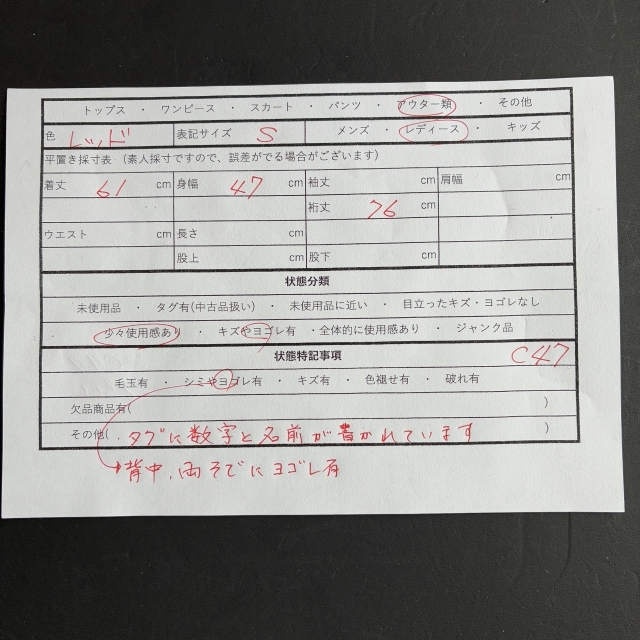 トップス ・ ワンピース ・ スカート ・ パンツ ・ アウター類 ・ その他
色 レッド 表記サイズ S メンズ ・ レディース ・ キッズ
平置き採寸表 (素人採寸ですので、誤差がでる場合がございます)
着丈 61 cm 身幅 47 cm 袖丈 cm 肩幅 cm
裄丈 76 cm
ウエスト cm 長さ cm
股上 cm 股下 cm
状態分類
未使用品 ・ タグ有(中古品扱い) ・ 未使用品に近い ・ 目立ったキズ・ヨゴレなし
少々使用感あり ・ キズやヨゴレ有 ・全体的に使用感あり ・ ジャンク品
状態特記事項 C47
毛玉有 ・ シミやヨゴレ有 ・ キズ有 ・ 色褪せ有 ・ 破れ有
欠品商品有( )
その他( ・タグに数字と名前が書かれています )
背中、両そでにヨゴレ有